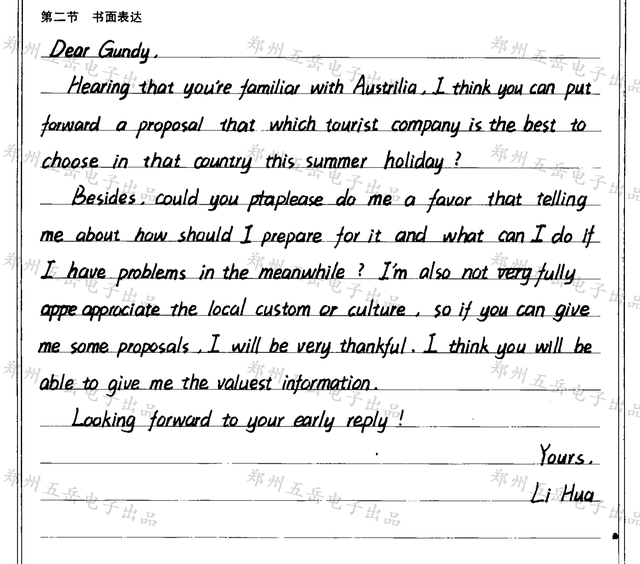 第二节 书面表达
Dear Gundy,
Hearing that you're familiar with Austrilia, I think you can put
forward a proposal that which tourist company is the best to
choose in that country this summer holiday?
Besides, could you ptaplease do me a favor that telling
me about how should I prepare for it and what can I do if
I have problems in the meanwhile? I'm also not very fully
appe approciate the local custom or culture, so if you can give
me some proposals, I will be very thankful. I think you will be
able to give me the valuest information.
Looking forward to your early reply!
Yours,
Li Hua
郑州五岳电子出品